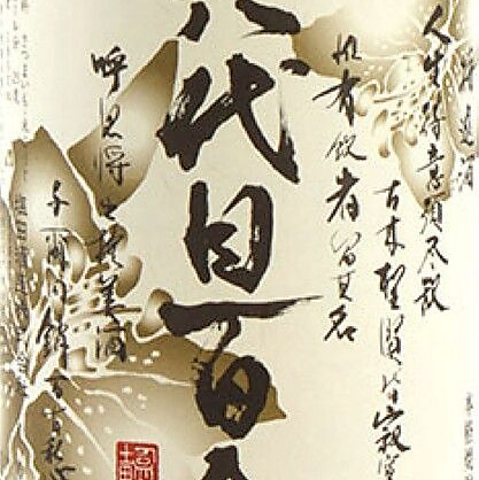 将進酒
人生得意須尽歓
古来聖賢皆寂寞
惟有飲者留其名
八代目百
呼児将出換美酒
与爾同銷万古愁